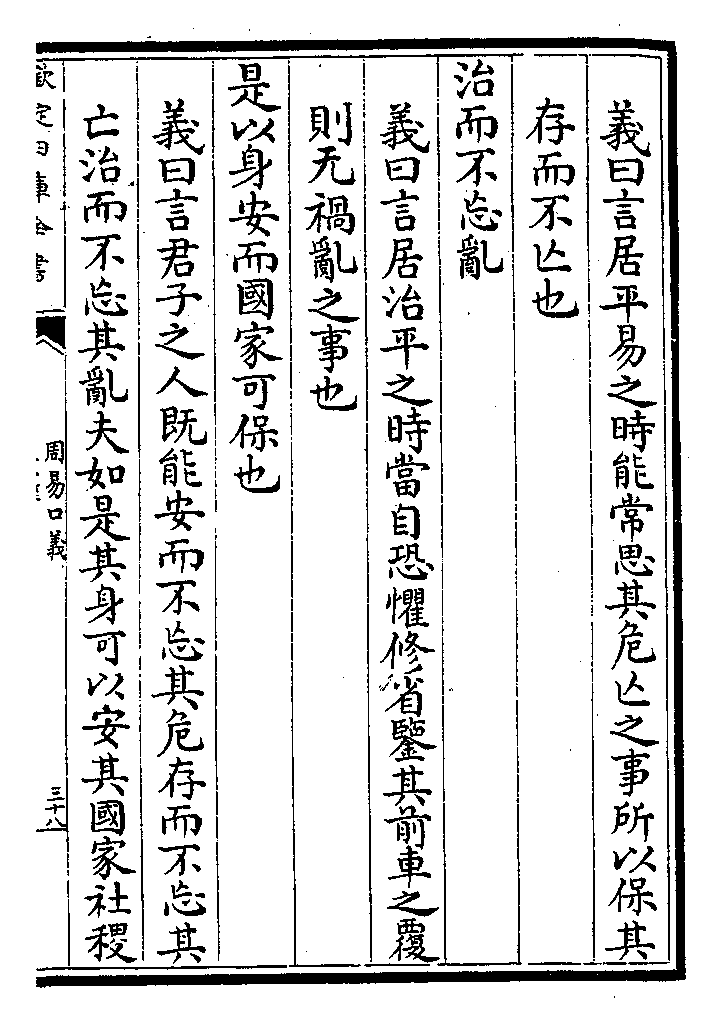 義曰言居平易之時能常思其危亡之事所以保其
存而不亡也
治而不忘亂
義曰言居治平之時當自恐懼修省鑒其前車之覆
則无禍亂之事也
是以身安而國家可保也
義曰言君子之人既能安而不忘其危存而不忘其
亡治而不忘其亂夫如是其身可以安其國家社稷
欽定四庫全書
周易口義
三十八